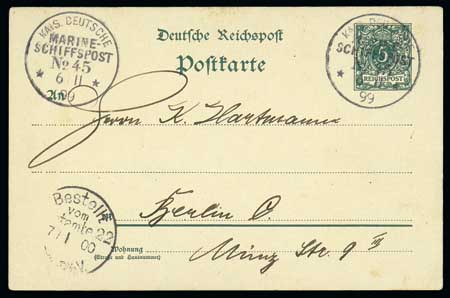 KAIS. DEUTSCHE
MARINE-
SCHIFFSPOST
No 45
* 6 11 *
99
Deutsche Reichspost
Postkarte
KAIS. DEUTSCHE
5
REICHSPOST
99
An
Herrn K. Hartmann
Bestellt
vom
Postamte 22
7/1 00
Berlin C.
Wohnung
(Straße und Hausnummer)
Münz Str. 9 III